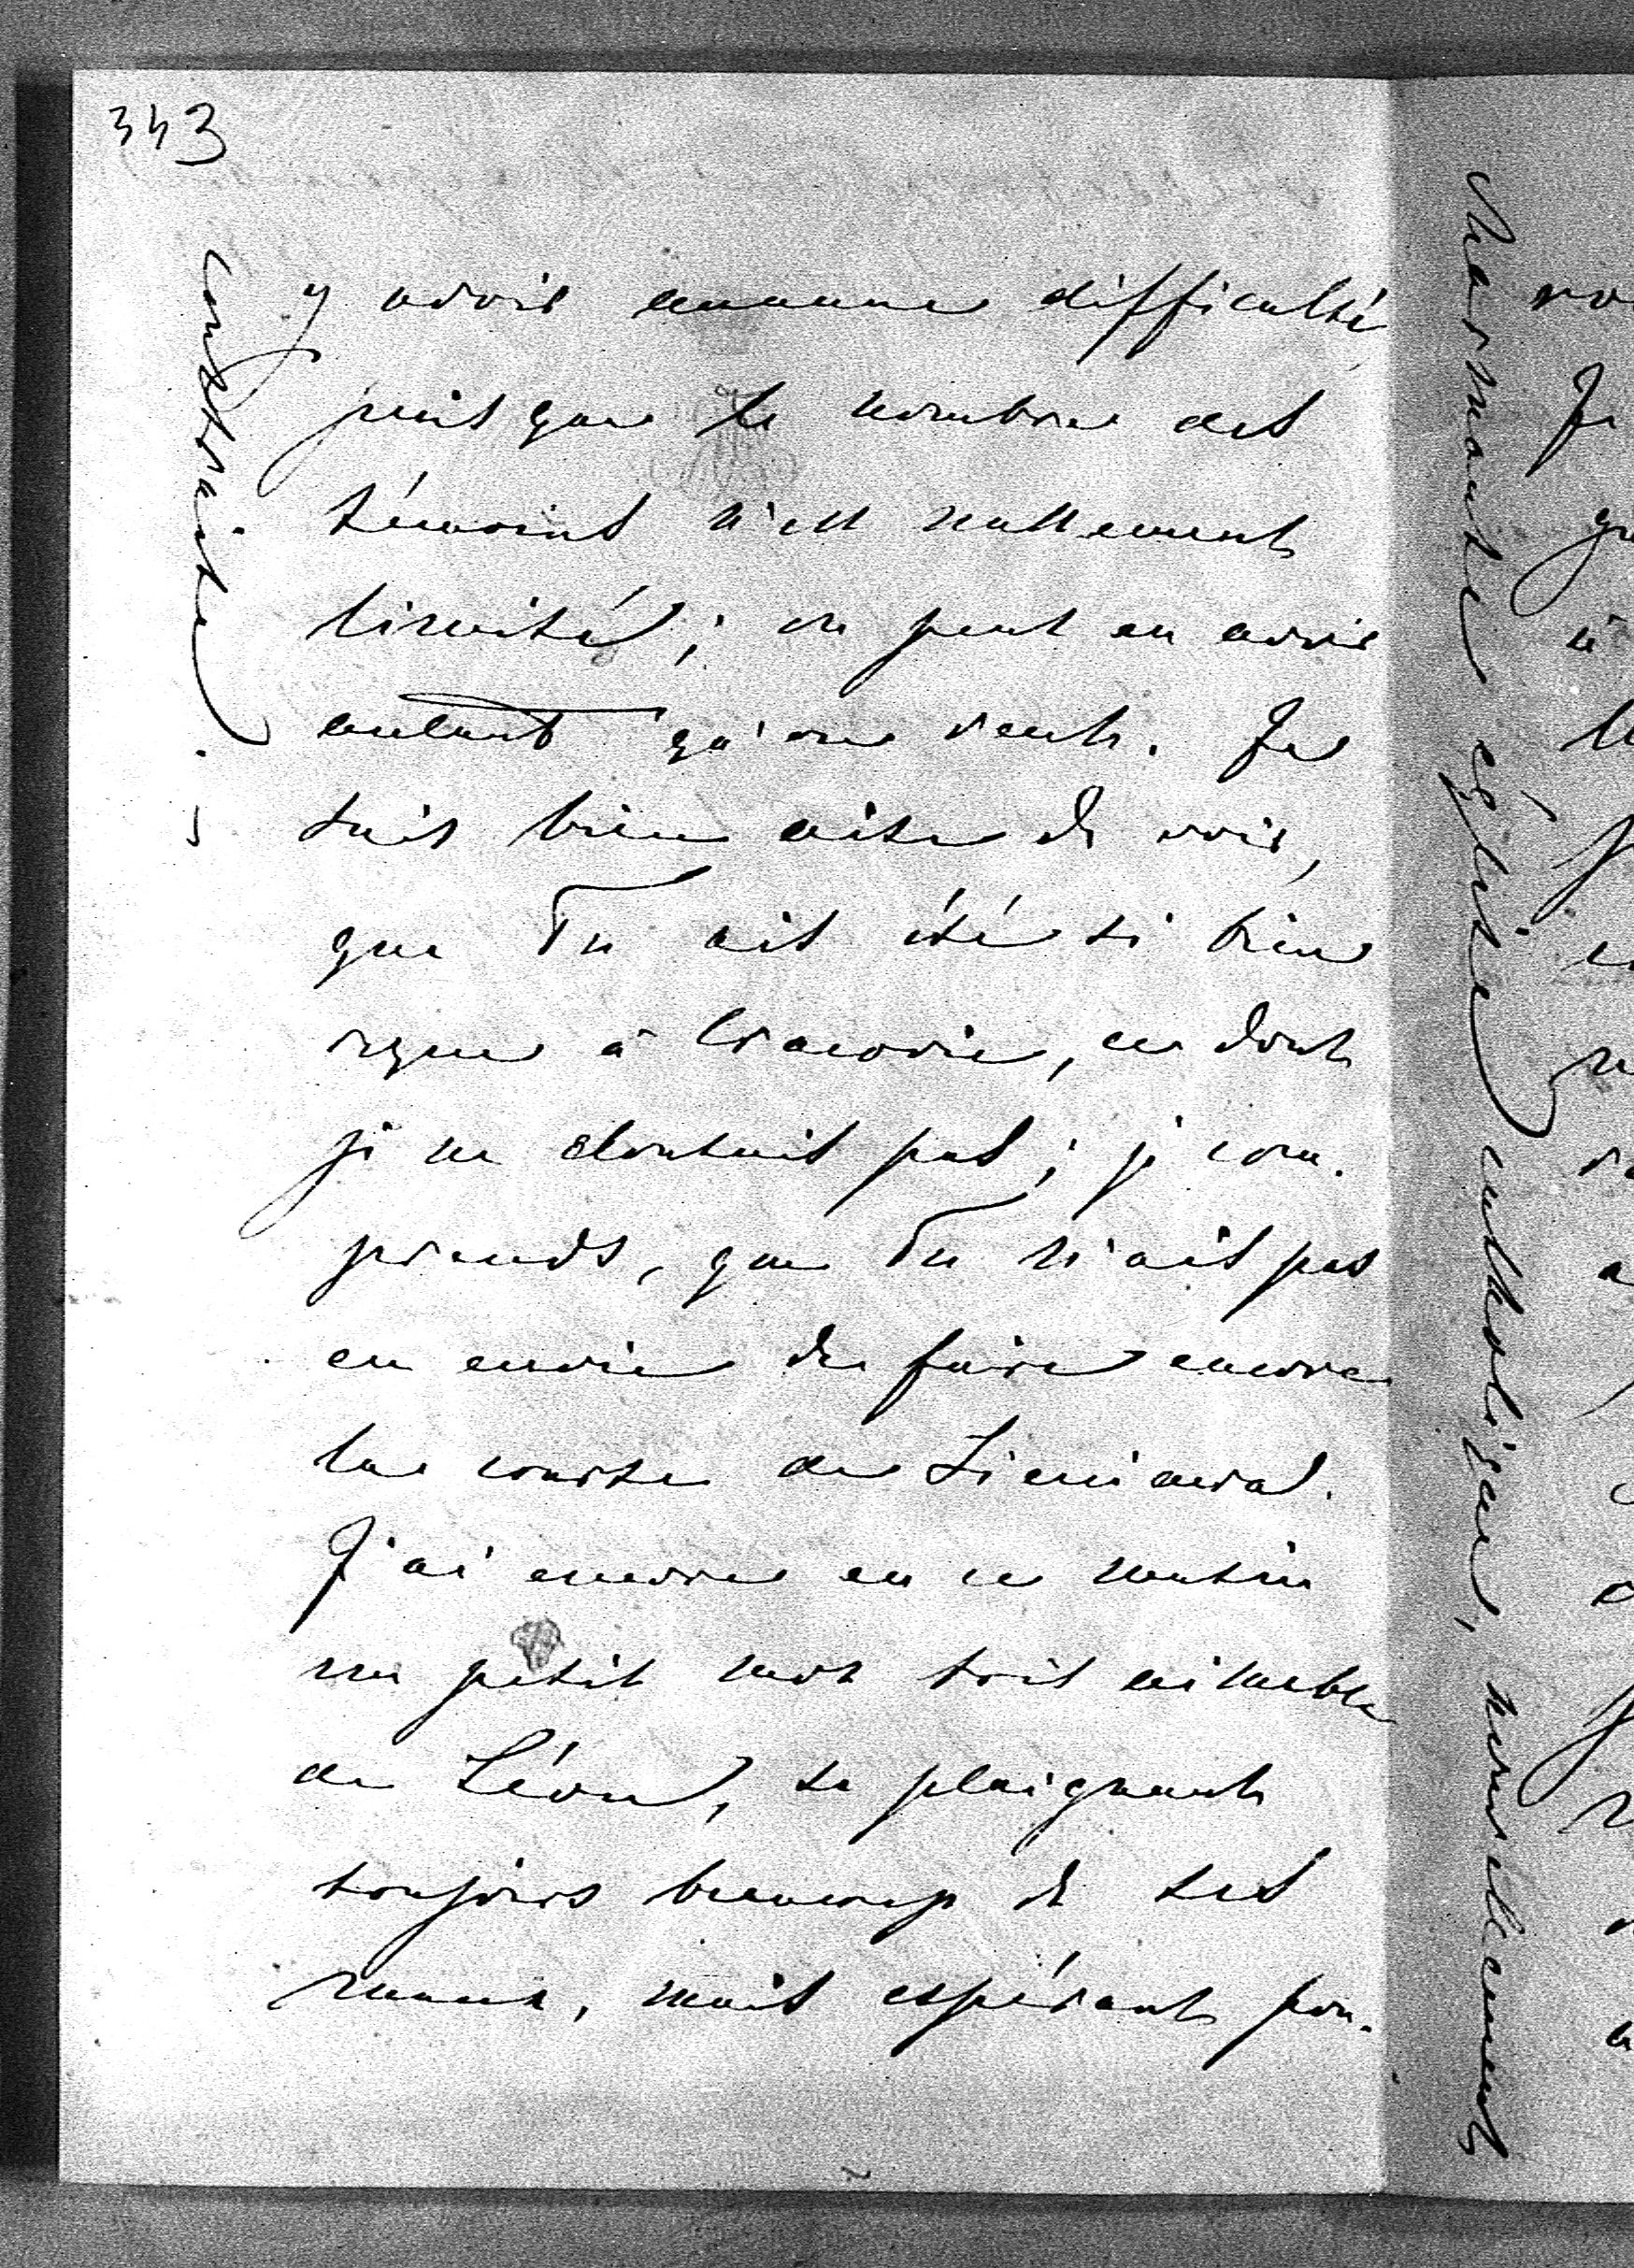 343
y avoir aucune difficulté,
puisque le nombre des
témoins n'est nullement
limité; on peut en avoir
autant qu'on veut. Je
suis bien aise de voir,
que Tu ais été si bien
reçue à Cracovie, ce dont
je ne doutais pas; je com-
prends, que Tu n'ais pas
eu envie de faire encore
la course de
J'ai encore eu ce matin
un petit mot très aimable
de Léon, se plaignant
toujours beaucoup de ses
maux, mais espérant pou-
construite.
charmante église catholique, nouvellement